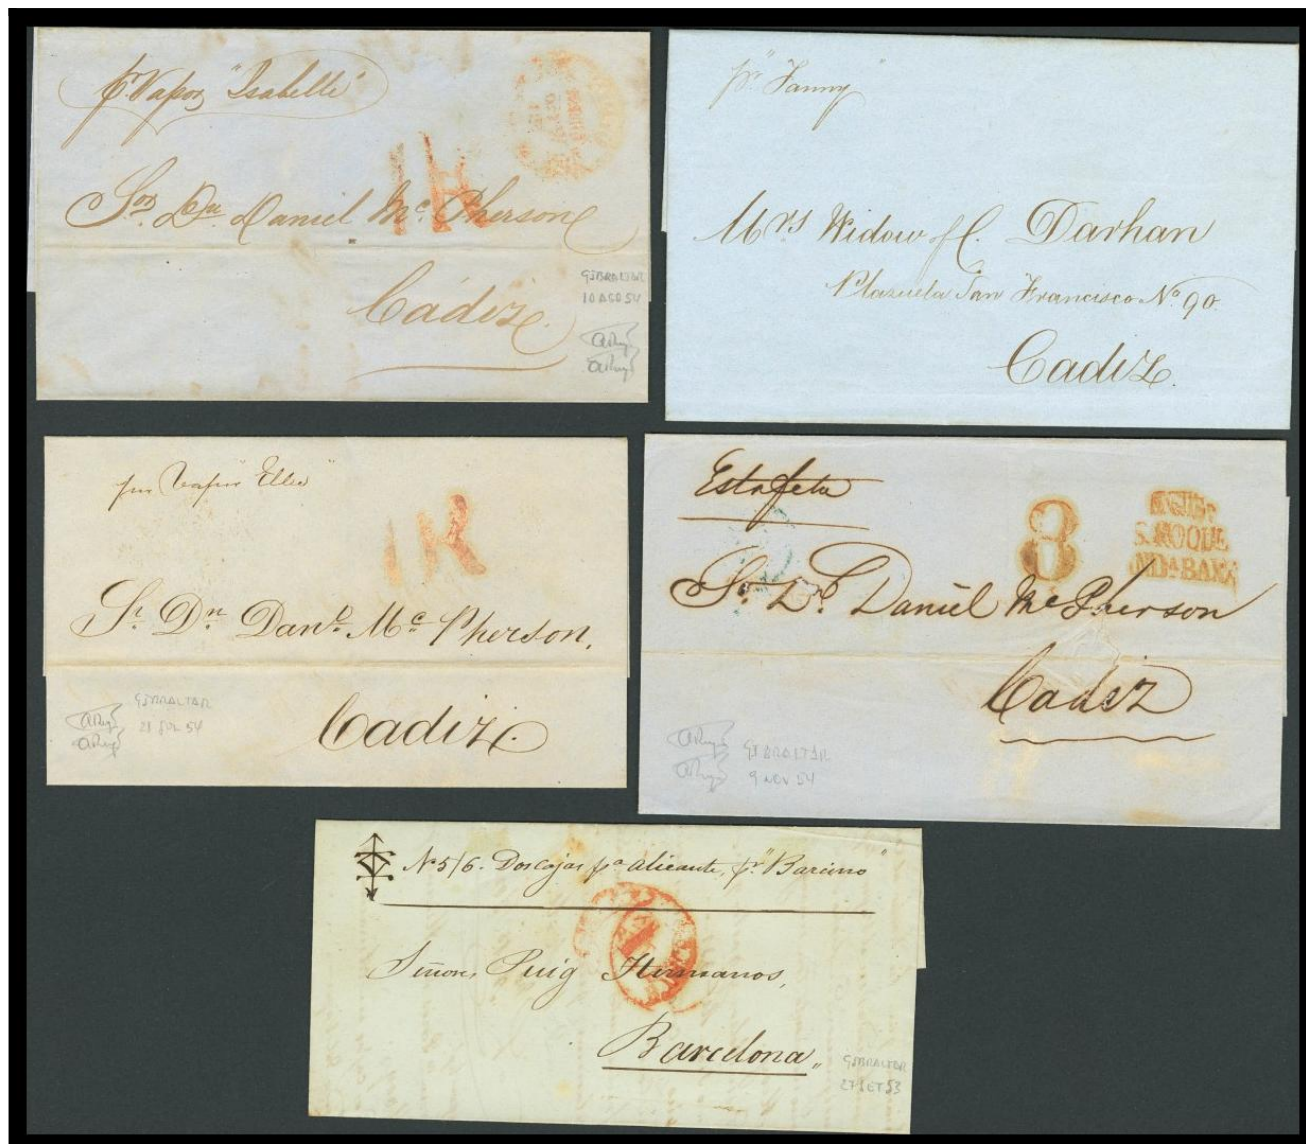 pr. Vapor "Isabelle"
1R
Sor. Dn. Daniel Mc. Pherson
Cádiz.
GIBRALTAR
10 AGO 54
pr "Fanny"
Mrs Widow of C. Darhan
Plazuela San Francisco No. 90.
Cadiz.
por Vapor "Ellen"
1R
Sr. Dn. Danl. Mc. Pherson.
Cadiz
GIBRALTAR
21 JUL 54
Estafeta
8
S. ROQUE
Sr. Dn. Daniel McPherson
Cadiz
GIBRALTAR
9 NOV 54
No 5/6. Dos cajas pa Alicante, pr. "Barcino"
Señores Puig Hermanos,
Barcelona,,
GIBRALTAR
27 SET 53